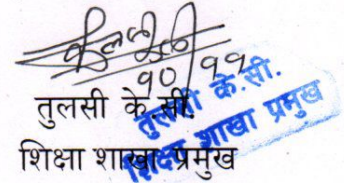 १०/११
तुलसी के.सी.
शिक्षा शाखा प्रमुख
तुलसी के.सी.
शिक्षा शाखा प्रमुख